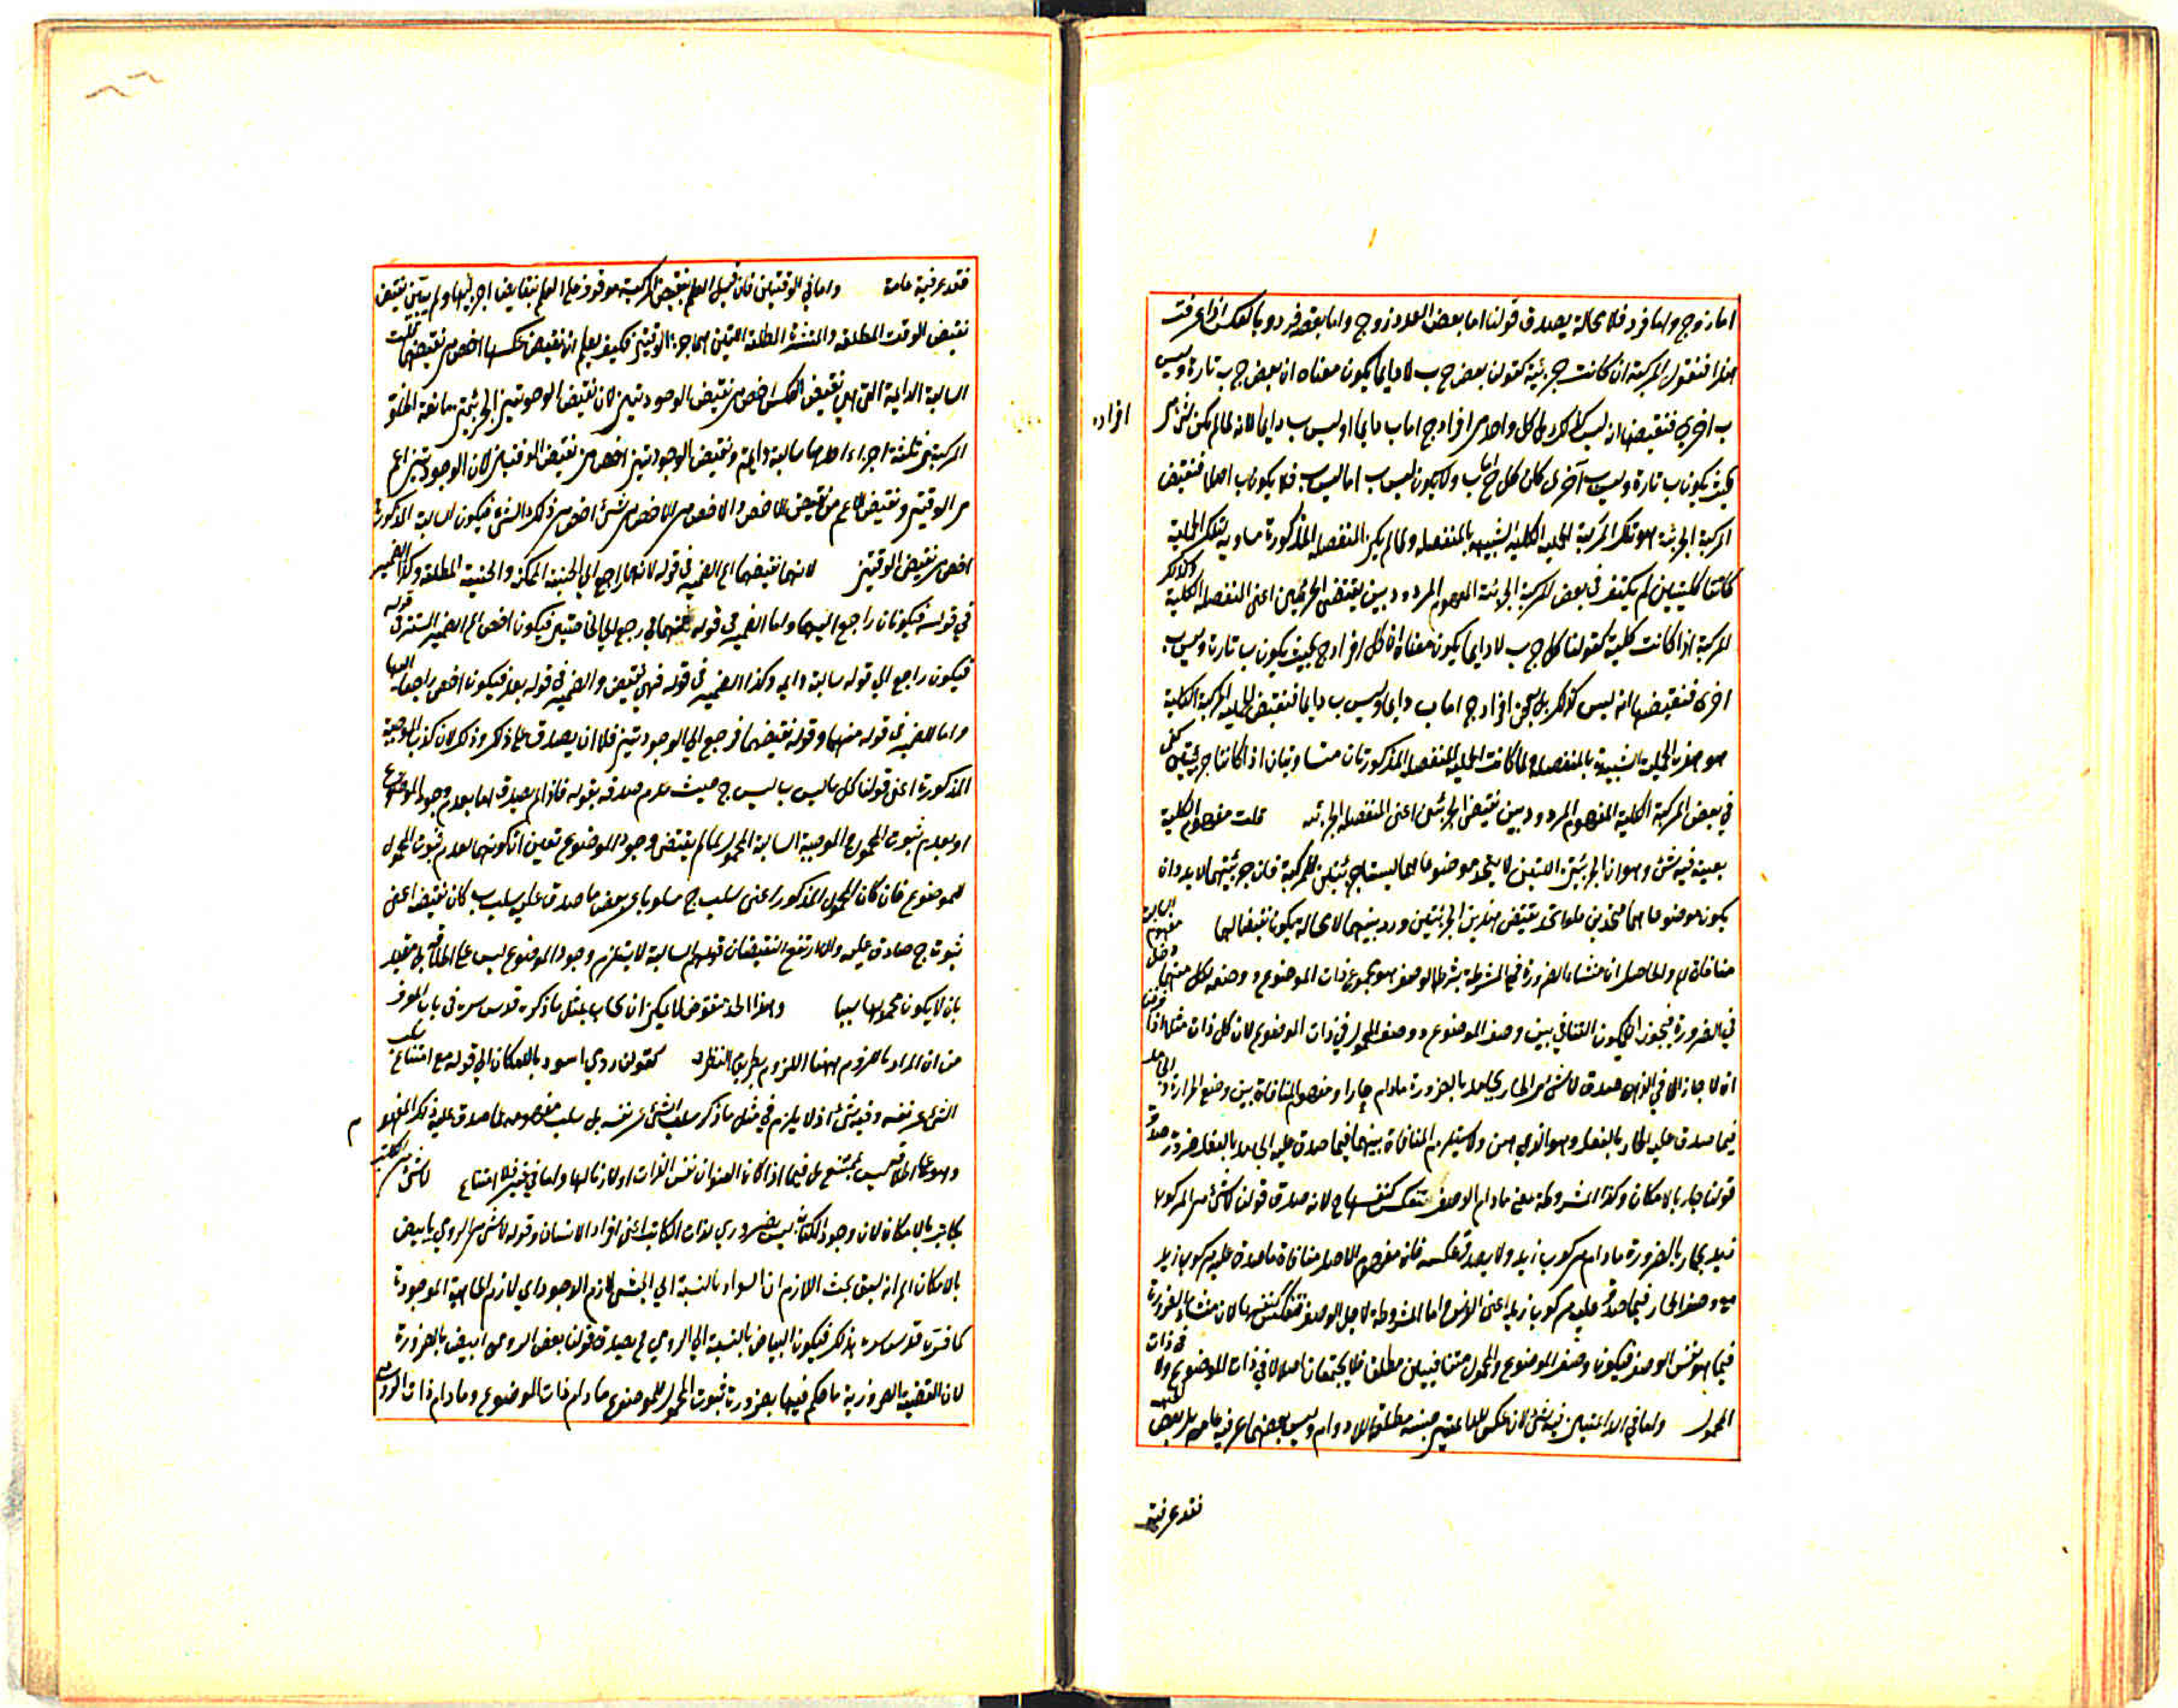 اما زوج واما فرد فلا محالة يصدق قولنا اما بعض العدد زوج واما بعضه فرد وبالعكس اذا عرفت
هذا فنقول المركبة ان كانت جزئية كقولنا بعض ج ب لا دايما يكون معناه ان بعض ج ب تارة وليس
ب اخرى فنقيضها انه ليس كذلك بل كل واحد من افراد ج اما ب دايما او ليس ب دايما لانه لما لم يكن شئ من
افراده
بحيث يكون ب تارة وليس ب اخرى كان كل ج اما ب ولا يكون ليس ب اما ليس ب فلا يكون ب اصلا فنقيض
المركبة الجزئية هو تلك المركبة الحملية الكلية الشبيهة بالمنفصلة ولما لم يكن المنفصلة المذكورة مساوية لتلك الحملية
كانتا كليتين لم يكتف في بعض المركبة الجزئية المفهوم المردود بين نقيضي الجزئين اعني المنفصلة الكلية وكذلك
المركبة اذا كانت كلية كقولنا كل ج ب لا دايما يكون معناه ان كل افراد ج بحيث يكون ب تارة وليس ب
اخرى فنقيضها انه ليس كذلك بل بعض افراد ج اما ب دايما وليس ب دايما فنقيض الحملية المركبة الكلية
هو هذه الحملية الشبيهة بالمنفصلة ولما كانت الحملية المنفصلة المذكورتان متساويتان اذا كانتا جزئيتين كفى
في بعض المركبة الكلية المفهوم المردود بين نقيض الجزئين اعني المنفصلة الجزئية قلت مفهوم الكلية
بعينه فيه شئ وهو ان الجزئيتين اللتين لا يتحد موضوعاهما ليستا جزئيتين للمركبة فان جزئيتيها لا بد وان
يكون موضوعاهما متحدين فلو اتحد نقيض هذين الجزئيتين وردد بينهما لا محالة يكون نقيضا لها السالبة مفهوم
منافاة له والحاصل ان منشاء الضرورة في المشروطة بشرط الوصف هو مجموع ذات الموضوع ووصفه فلكل منهما دخل
في الضرورة فيجوز ان يكون التنافي بين وصف الموضوع ووصف المحمول في ذات الموضوع لان كل ذات مثلا اذا فرض
انه لا حار الا في الذهن صدق لا شئ من الحار بجامد بالضرورة ما دام حارا ومفهوم المنافاة بين وصفي الحرارة والجامد
فيما صدق عليه الحار بالفعل وهو الذهن ولا يستلزم المنافاة بينهما فيما صدق عليه الجامد بالفعل ضرورة صدق
قولنا حار بالامكان وكذا المشروطة بمعنى ما دام الوصف تنعكس كنفسها ح لانه صدق قولنا لا شئ من المركوب
زيد بحمار بالضرورة ما دام مركوب زيد ولا يصدق عكسه فان مفهوم الاصل منافاة ما صدق عليه مركوب زيد
مع وصف الحمار فيما صدق عليه مركوب زيد اعني الفرس اما المشروطة لاجل الوصف تنعكس كنفسها لان منشاء الضرورة
فيها هو نفس الوصف فيكون وصف الموضوع والمحمول متنافيين مطلقا فلا يجتمعان اصلا لا في ذات الموضوع ولا في ذات
المحمول واما في الدائمتين فيه شئ لان عكس العامتين حينية مطلقة اللادوام وليس بعضها عرفية عامة بل بعض
فقد عرفية
فقد عرفية عامة واما في الوقتيين فان قيل العلم بنقيض المركبة موقوف على العلم بنقايض اجزائها ولم يتبين نقيض
نقيض الوقت المطلقة والمنتشرة المطلقة اللتين هما جزء الوقتيين فكيف يعلم ان نقيض عكسها اخص من نقيضهما قلت
السالبة الدايمة التي هي نقيض العكس اخص من نقيض الوجوديتين لان نقيض الوجوديتين الجزئيتين مانعة الخلو
المركبة من ثلثة اجزاء احدها سالبة دايمة ونقيض الوجوديتين اخص من نقيض الوقتيين لان الوجوديتين اعم
من الوقتيتين ونقيض الاعم من نقيض الاخص والاخص من الاخص من شئ اخص من ذلك الشئ فيكون السالبة المذكورة
اخص من نقيض الوقتيتين لانهما نقيضهما اه الضمير في قوله لانهما راجع الي الحينية الممكنة والحينية المطلقة وكذا الضمير
في قوله فيكونان راجع اليهما واما الضمير في قوله نقيضهما فيرجع الي الخاصتين فيكون اخص اه الضمير المستتر في قوله
فيكون راجع الي قوله سالبة دايمة وكذا الضمير في قوله فهي نقيض والضمير في قوله بعد فيكون اخص راجعا اليها
واما الضمير في قوله منهما وقوله نقيضهما فرجع الي الوجوديتين فلا ان يصدق على ذكر وذكر لان كذب الموجبة
المذكورة اعني قولنا كل ما ليس ب ليس ج حيث عدم صدقه بقوله فاذا لم يصدق اما بعدم وجود الموضوع
او بعدم ثبوت المحمول والموجبة السالبة المحمول لما لم يقتض وجود الموضوع تعين ان كونها لعدم ثبوت المحمول
للموضوع فان كان المحمول المذكور اعني سلب ج مسلوبا عن بعض ما صدق عليه سلب ب كان نقيضه اعني
ثبوت ج صادق عليه والا ارتفع النقيضان قولهم السالبة لا يستلزم وجود الموضوع ليس على اطلاقه بل مقيد
بان لا يكون محمولها سببا وهذا الحد منقوض لا يمكن ان يجاب بمثل ما ذكره قدس سره في باب المعرف
من ان المراد بالمزوم ههنا اللزوم بطريق النظر كقولنا رومي اسود بالامكان الي قوله مع امتناع سلب
الشئ عن نفسه وفيه شئ اذ لا يلزم في مثل ما ذكر سلب الشئ عن نفسه بل سلب مفهومه عما صدق عليه ذلك المفهوم
وهو على اطلاقه ليس بممتنع بل فيما اذا كان العنوان نفس الذات او لازما لها واما في غيره فلا امتناع لا شئ من الكاتب
بكاتب بالامكان لان وجود الكتابة ليس بضروري لذات الكاتب اعني افراد الانسان وقوله لا شئ من الرومي بابيض
بالامكان اه انه سبق بحث اللازم ان السواد بالنسبة الي الحبشي لازم الوجود اي لازم الماهية الموجودة
كما فسره قدس سره بذلك فيكون البياض بالنسبة الي الرومي ح يصدق قولنا بعض الرومي ابيض بالضرورة
لان القضية الضرورية ما حكم فيها بضرورة ثبوت المحمول للموضوع ما دام ذات الموضوع وما دام ذات الرومي